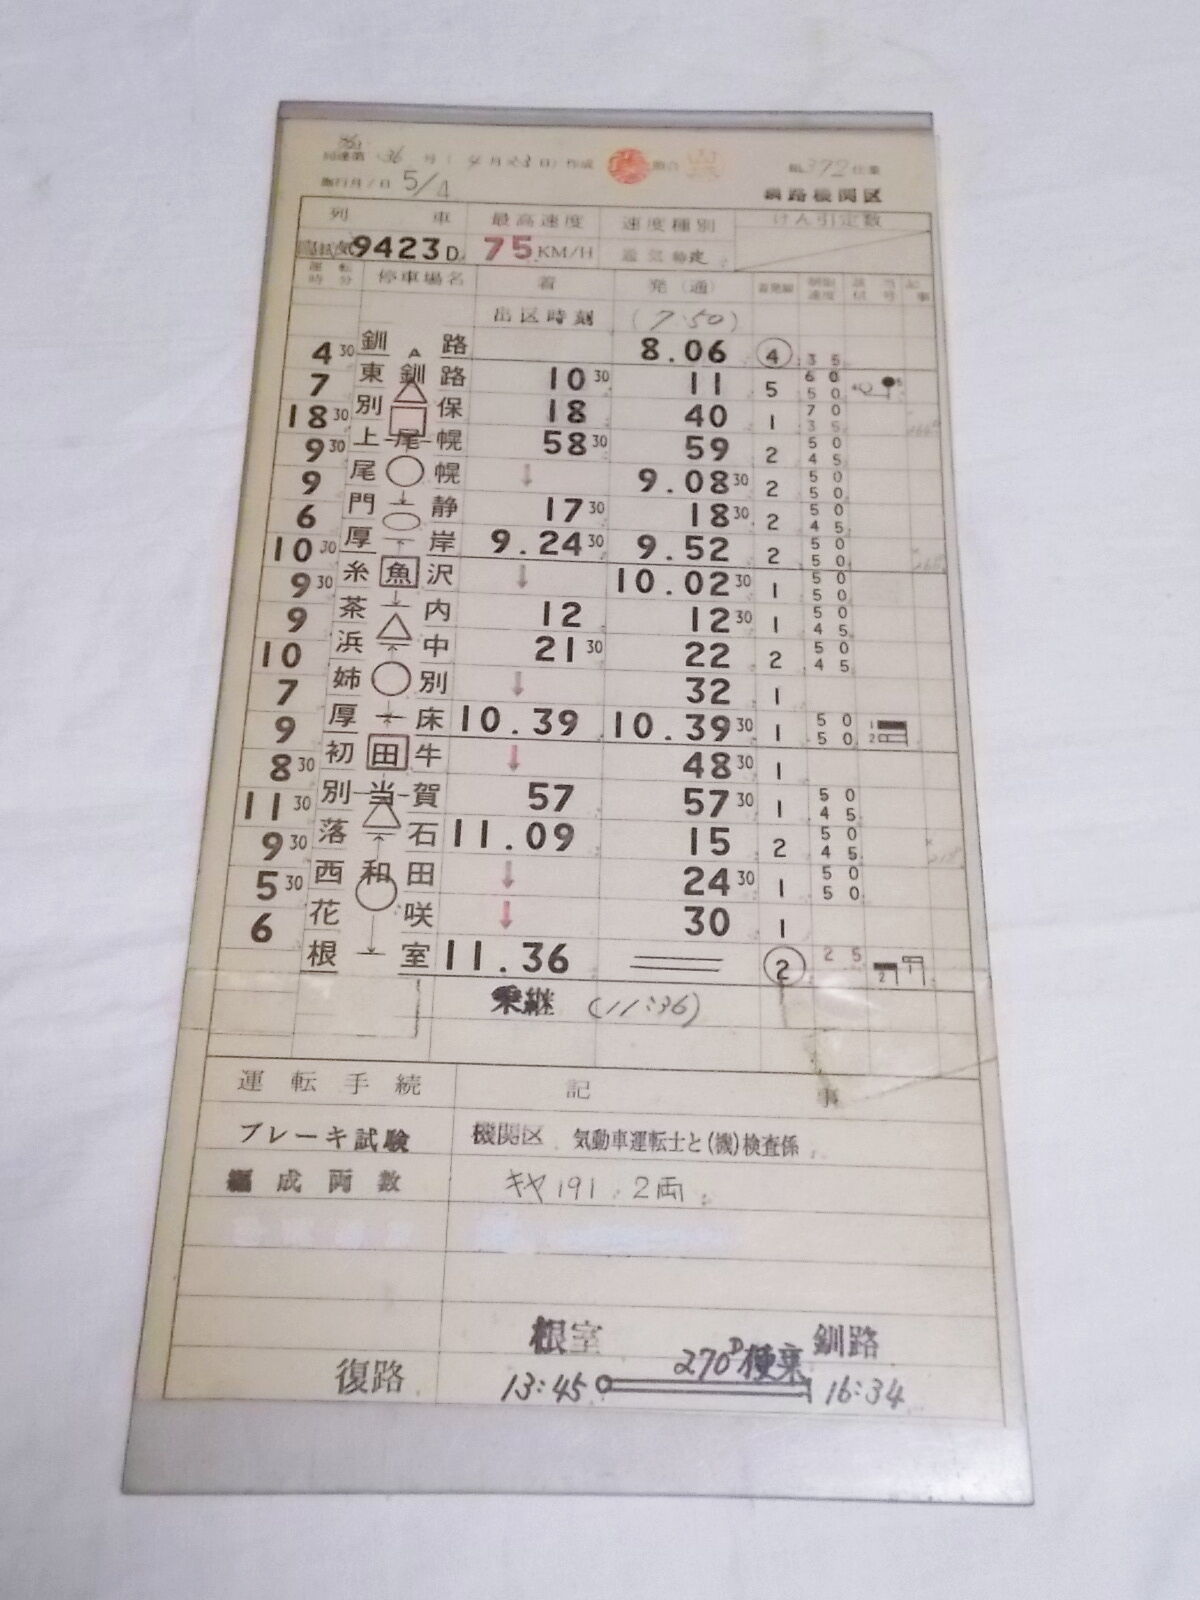 局達第 36 号 ( 4 月 23 日) 作成
施行月/日 5/4
372 仕業
釧路機関区
列車 最高速度 速度種別 けん引定数
9423D 75 KM/H 通気 特定
運転時分 停車場名 着 発(通) 着発線 制限速度 記事
出区時刻 (7:50)
4 30 釧路 8.06 ④ 35
7 東釧路 10 30 11 5 60 50
18 30 別保 18 40 1 70 35
9 30 上尾幌 58 30 59 2 50 45
9 尾幌 ↓ 9.08 30 2 50 50
6 門静 17 30 18 30 2 50 45
10 30 厚岸 9.24 30 9.52 2 50 50
9 30 糸魚沢 ↓ 10.02 30 1 50 50
9 茶内 12 12 30 1 50 45
10 浜中 21 30 22 2 50 45
7 姉別 ↓ 32 1
9 厚床 10.39 10.39 30 1 50 50 1 2
8 30 初田牛 ↓ 48 30 1
11 30 別当賀 57 57 30 1 50 45
9 30 落石 11.09 15 2 50 45
5 30 西和田 ↓ 24 30 1 50 50
6 花咲 ↓ 30 1
根室 11.36 ② 25 2 1
乗継 (11:36)
運転手続 記事
ブレーキ試験 機関区 気動車運転士と(機)検査係
編成両数 キヤ191 2両
根室 釧路
復路 13:45 270D便乗 16:34